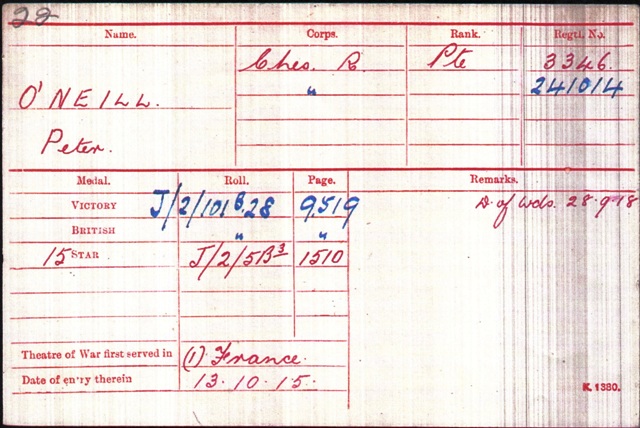 22
Name. Corps. Rank. Regtl. No.
Ches. R. Pte 3346.
O'NEILL. " 241014
Peter.
Medal. Roll. Page. Remarks.
VICTORY J/2/101B28 9519 D. of Wds. 28.9.18
BRITISH " "
15 STAR J/2/5B3 1510
Theatre of War first served in (1) France.
Date of entry therein 13.10.15.
K. 1380.